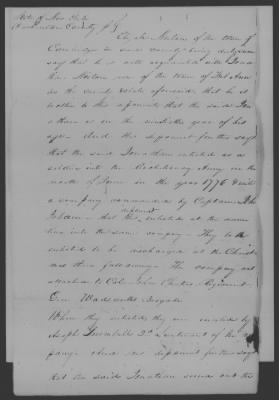 State of New York
Washington County SS
Eli M. Norton of the town of
Cambridge in said county being duly sworn
says that he is well acquainted with Jona
than Norton now of the town of Fort Ann
in the county & state aforesaid that he is
brother to this deponent that the said Jon
athan is in the year of his
age. And the deponent further says
that the said Jonathan enlisted as a
soldier into the Revolutionary Army in the
month of June in the year 1776 & with
a company commanded by Captain John
that this deponent enlisted at the same
time into the same company - They to be
enlisted to be discharged at the Christ
mas then following - The company was
attached to Col. Regiment
Gen. Wadsworths Brigade
When they enlisted they were enlisted by
Joseph Trumbull 2d Lieutenant of the
pany. And this deponent further says
that the said Jonathan served out the